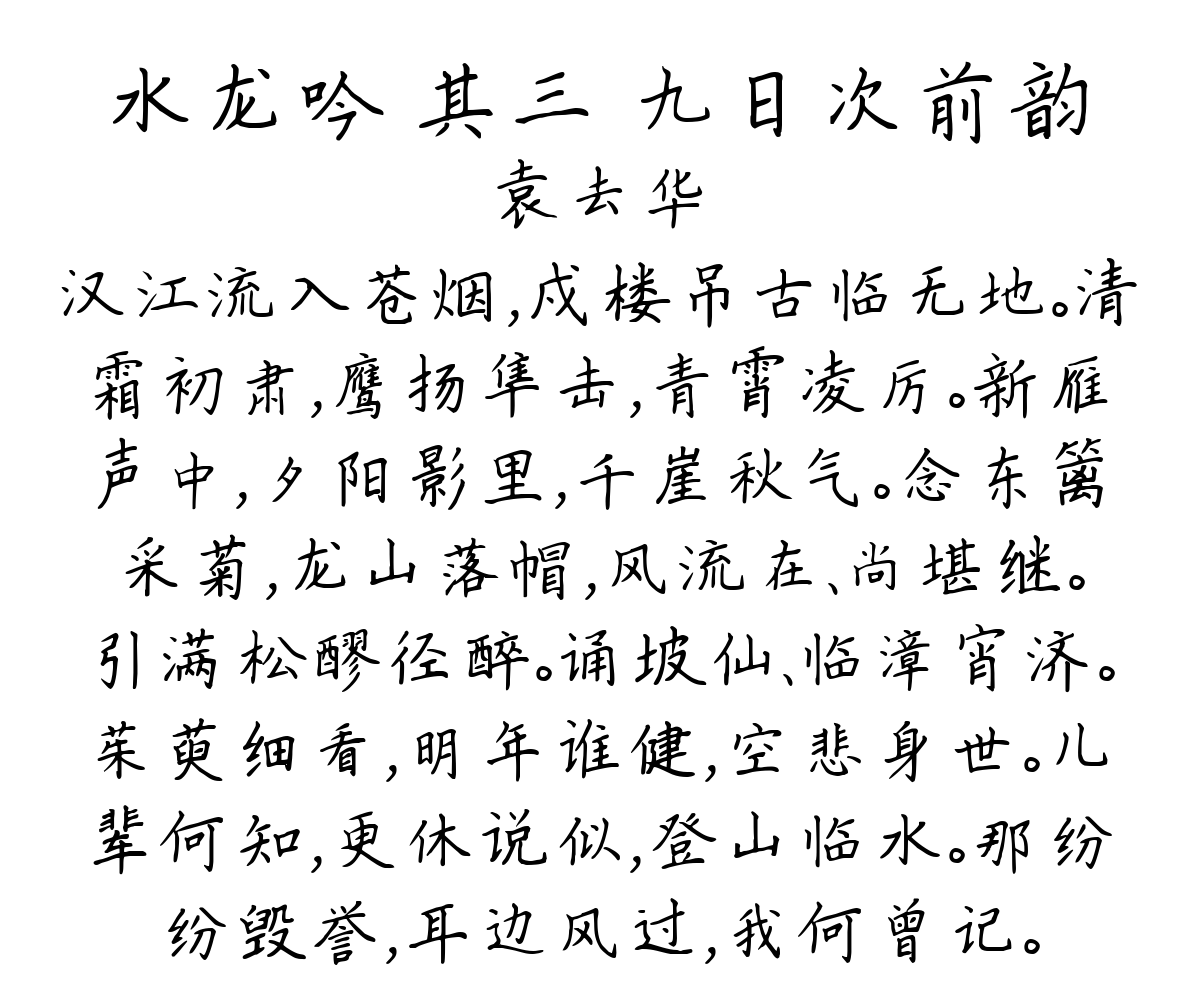 水龙吟 其三 九日次前韵
袁去华
汉江流入苍烟,戍楼吊古临无地。清
霜初肃,鹰扬隼击,青霄凌厉。新雁
声中,夕阳影里,千崖秋气。念东篱
采菊,龙山落帽,风流在、尚堪继。
引满松醪径醉。诵坡仙、临漳宵济。
茱萸细看,明年谁健,空悲身世。儿
辈何知,更休说似,登山临水。那纷
纷毁誉,耳边风过,我何曾记。